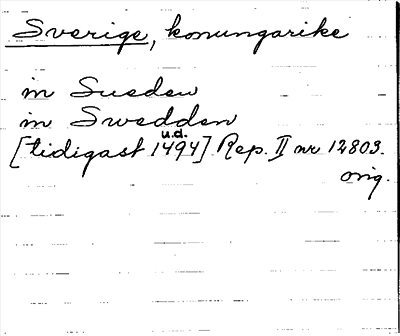 Sverige, konungarike
in Sueden
in Swedden
u.d.
[tidigast 1494] Rep. II nr 12803.
orig.